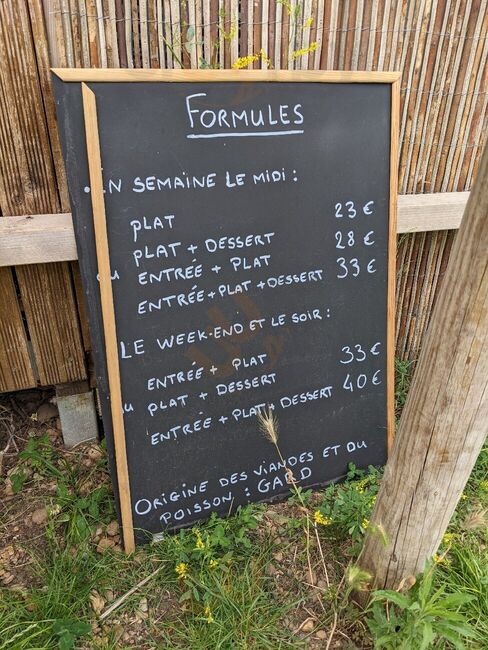 FORMULES
EN SEMAINE LE MIDI :
PLAT 23 €
PLAT + DESSERT 28 €
ou ENTRÉE + PLAT
ENTRÉE + PLAT + DESSERT 33 €
LE WEEK-END ET LE SOIR :
ENTRÉE + PLAT 33 €
ou PLAT + DESSERT
ENTRÉE + PLAT + DESSERT 40 €
ORIGINE DES VIANDES ET DU
POISSON : GARD